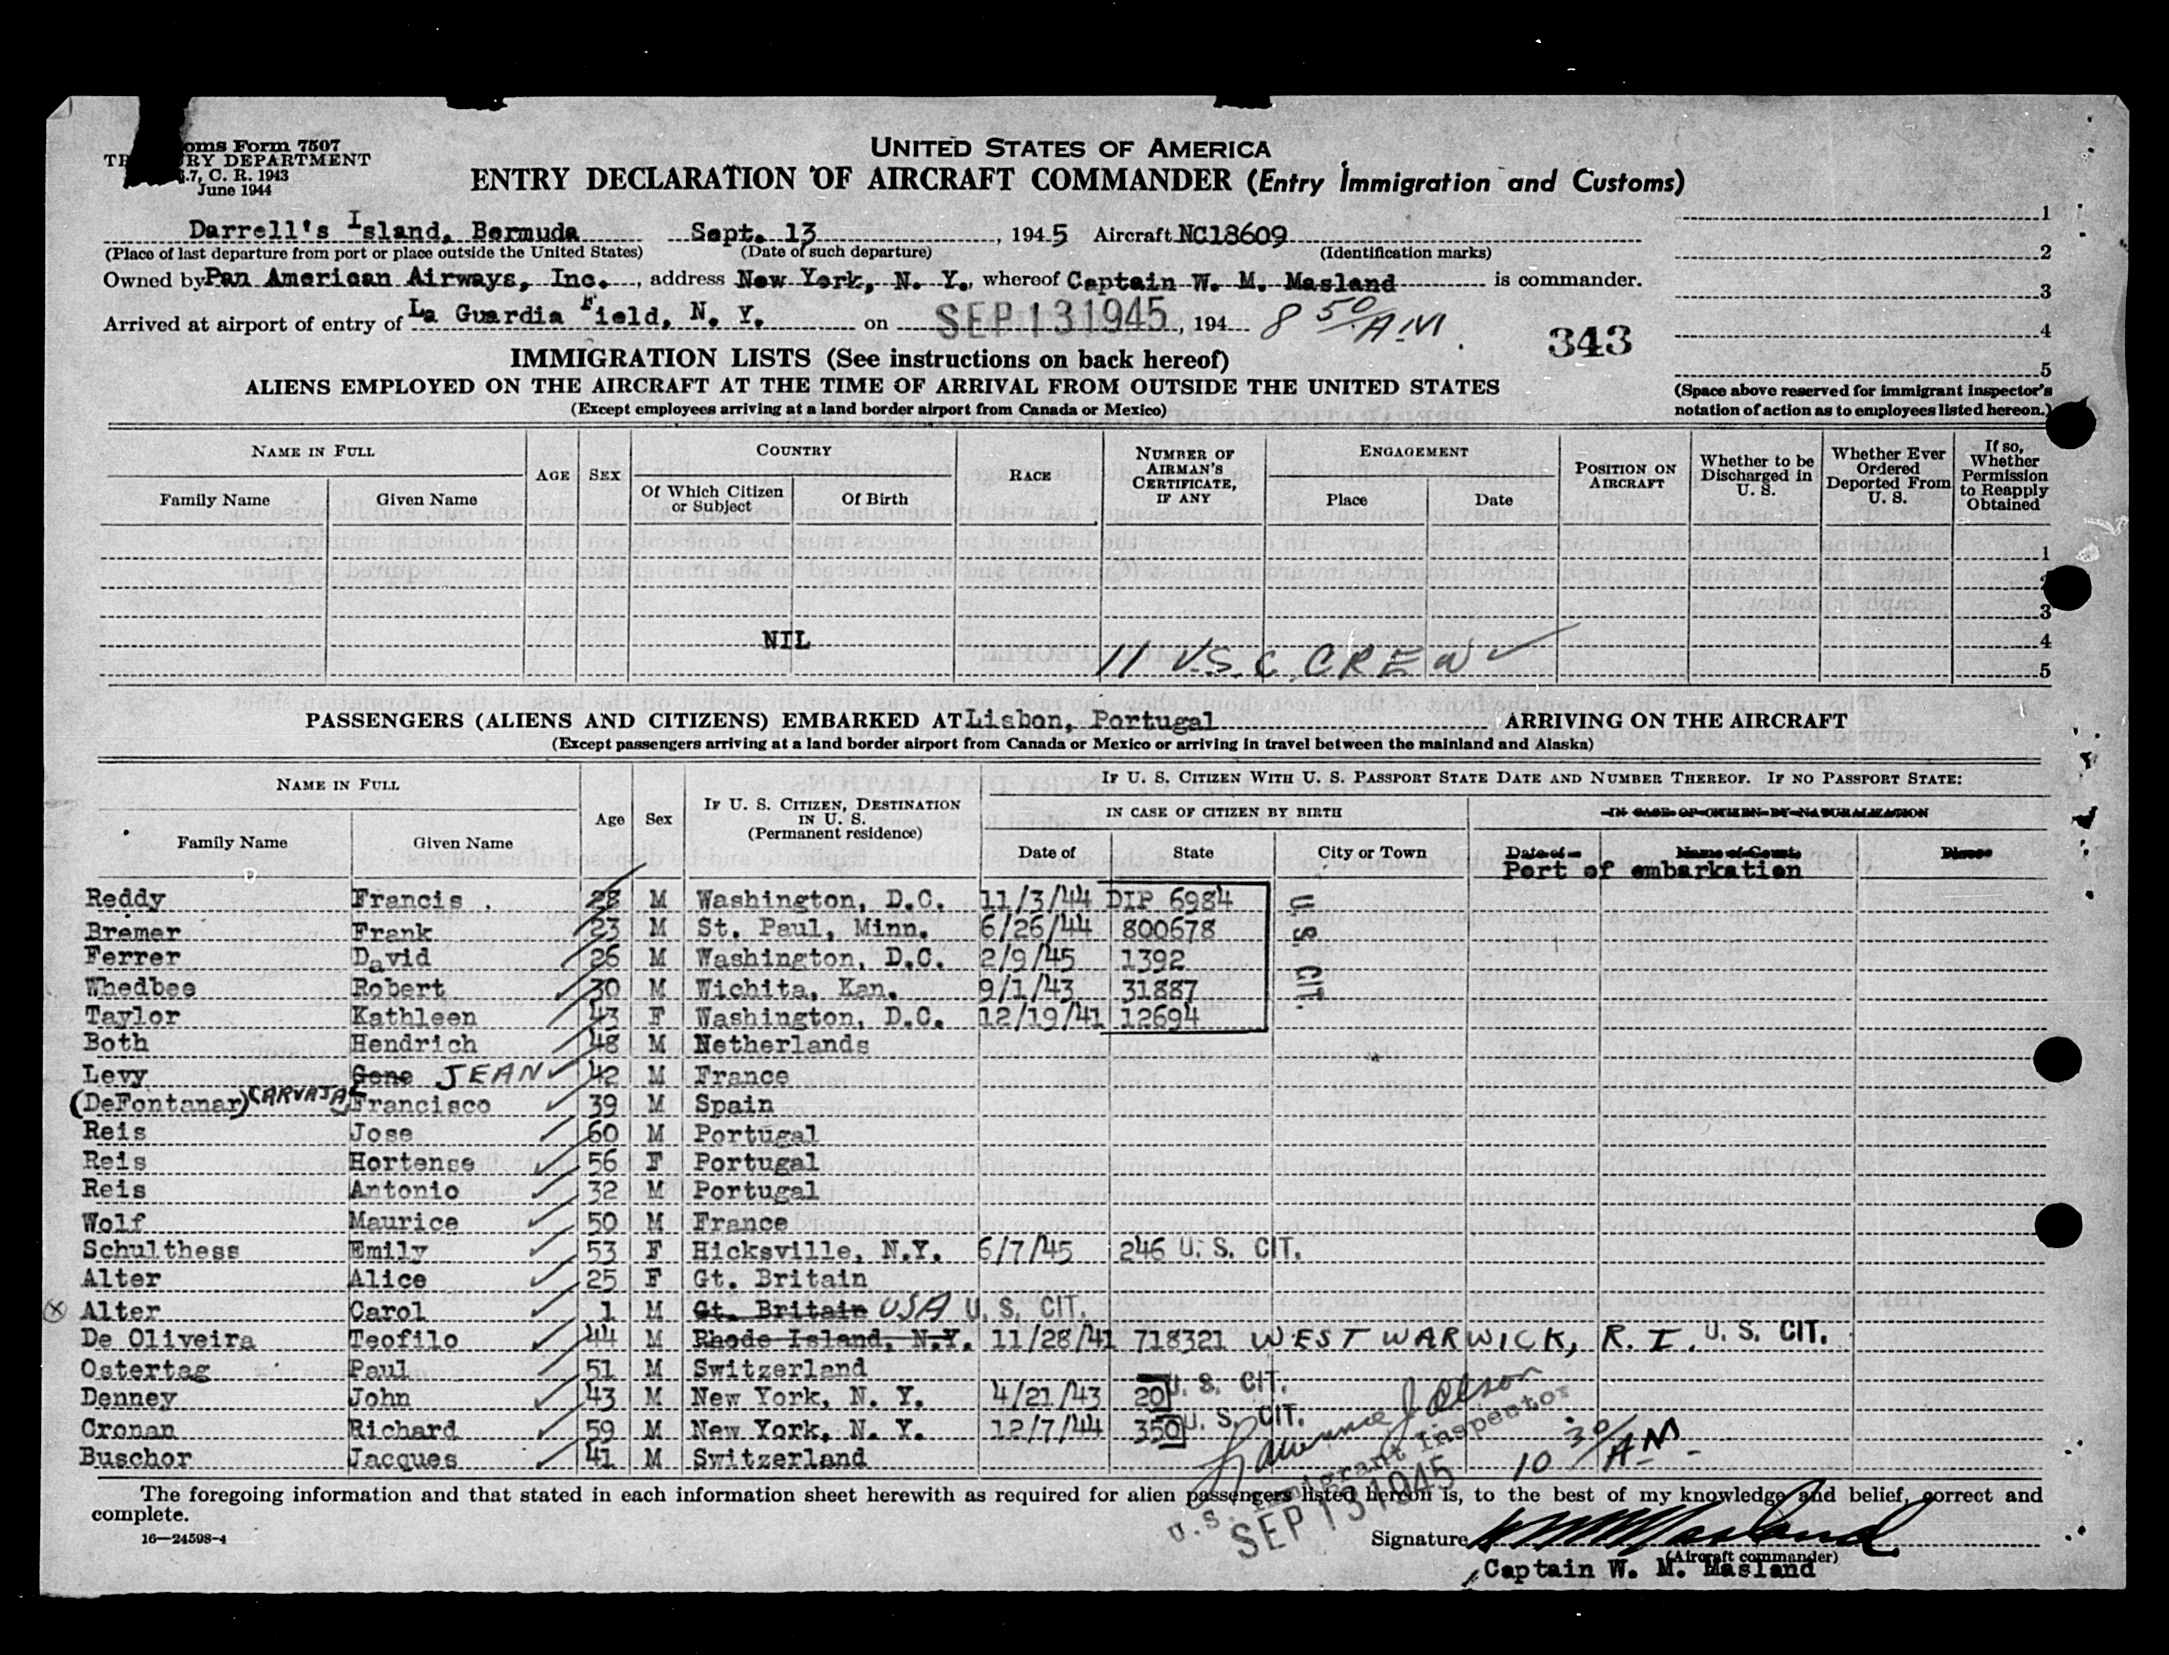 oms Form 7507
TR RY DEPARTMENT
.7, C. R. 1943
June 1944
UNITED STATES OF AMERICA
ENTRY DECLARATION OF AIRCRAFT COMMANDER (Entry Immigration and Customs)
Darrell's Island, Bermuda Sept. 13, 1945 Aircraft NC18609
(Place of last departure from port or place outside the United States) (Date of such departure) (Identification marks)
Owned by Pan American Airways, Inc., address New York, N. Y., whereof Captain W. M. Masland is commander.
Arrived at airport of entry of La Guardia Field, N. Y. on SEP 13 1945, 194 8 50 AM
343
1
2
3
4
5
(Space above reserved for immigrant inspector's notation of action as to employees listed hereon.)
IMMIGRATION LISTS (See instructions on back hereof)
ALIENS EMPLOYED ON THE AIRCRAFT AT THE TIME OF ARRIVAL FROM OUTSIDE THE UNITED STATES
(Except employees arriving at a land border airport from Canada or Mexico)
NAME IN FULL AGE SEX COUNTRY RACE NUMBER OF AIRMAN'S CERTIFICATE, IF ANY ENGAGEMENT POSITION ON AIRCRAFT Whether to be Discharged in U. S. Whether Ever Ordered Deported From U. S. If so, Whether Permission to Reapply Obtained
Family Name Given Name Of Which Citizen or Subject Of Birth Place Date
1
2
3
NIL 4
11 U.S.C. CREW 5
PASSENGERS (ALIENS AND CITIZENS) EMBARKED AT Lisbon, Portugal ARRIVING ON THE AIRCRAFT
(Except passengers arriving at a land border airport from Canada or Mexico or arriving in travel between the mainland and Alaska)
NAME IN FULL Age Sex IF U. S. CITIZEN, DESTINATION IN U. S. (Permanent residence) IF U. S. CITIZEN WITH U. S. PASSPORT STATE DATE AND NUMBER THEREOF. IF NO PASSPORT STATE:
IN CASE OF CITIZEN BY BIRTH IN CASE OF CITIZEN BY NATURALIZATION
Family Name Given Name Date of State City or Town Date of Name of Court Place
Port of embarkation
Reddy Francis 28 M Washington, D.C. 11/3/44 DIP 6984 U. S. CIT.
Bremer Frank 23 M St. Paul, Minn. 6/26/44 800678
Ferrer David 26 M Washington, D.C. 2/9/45 1392
Whedbee Robert 30 M Wichita, Kan. 9/1/43 31887
Taylor Kathleen 43 F Washington, D.C. 12/19/41 12694
Both Hendrich 48 M Netherlands
Levy Gene JEAN 42 M France
(DeFontanar) CARVAJAL Francisco 39 M Spain
Reis Jose 60 M Portugal
Reis Hortense 56 F Portugal
Reis Antonio 32 M Portugal
Wolf Maurice 50 M France
Schulthess Emily 53 F Hicksville, N.Y. 6/7/45 246 U. S. CIT.
Alter Alice 25 F Gt. Britain
Alter Carol 1 M Gt. Britain USA U. S. CIT.
De Oliveira Teofilo 44 M Rhode Island, N.Y. 11/28/41 718321 WEST WARWICK, R. I. U. S. CIT.
Ostertag Paul 51 M Switzerland
Denney John 43 M New York, N. Y. 4/21/43 20 U. S. CIT.
Cronan Richard 59 M New York, N. Y. 12/7/44 350 U. S. CIT.
Buschor Jacques 41 M Switzerland
10 30 AM
U.S. Immigrant Inspector
SEP 13 1945
The foregoing information and that stated in each information sheet herewith as required for alien passengers listed hereon is, to the best of my knowledge and belief, correct and
complete.
16—24598-4
Signature W M Masland
(Aircraft commander)
Captain W. M. Masland